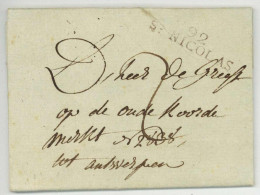 92
ST NICOLAS
D'heer De
op de oude koorde
merkt
tot antwerpen